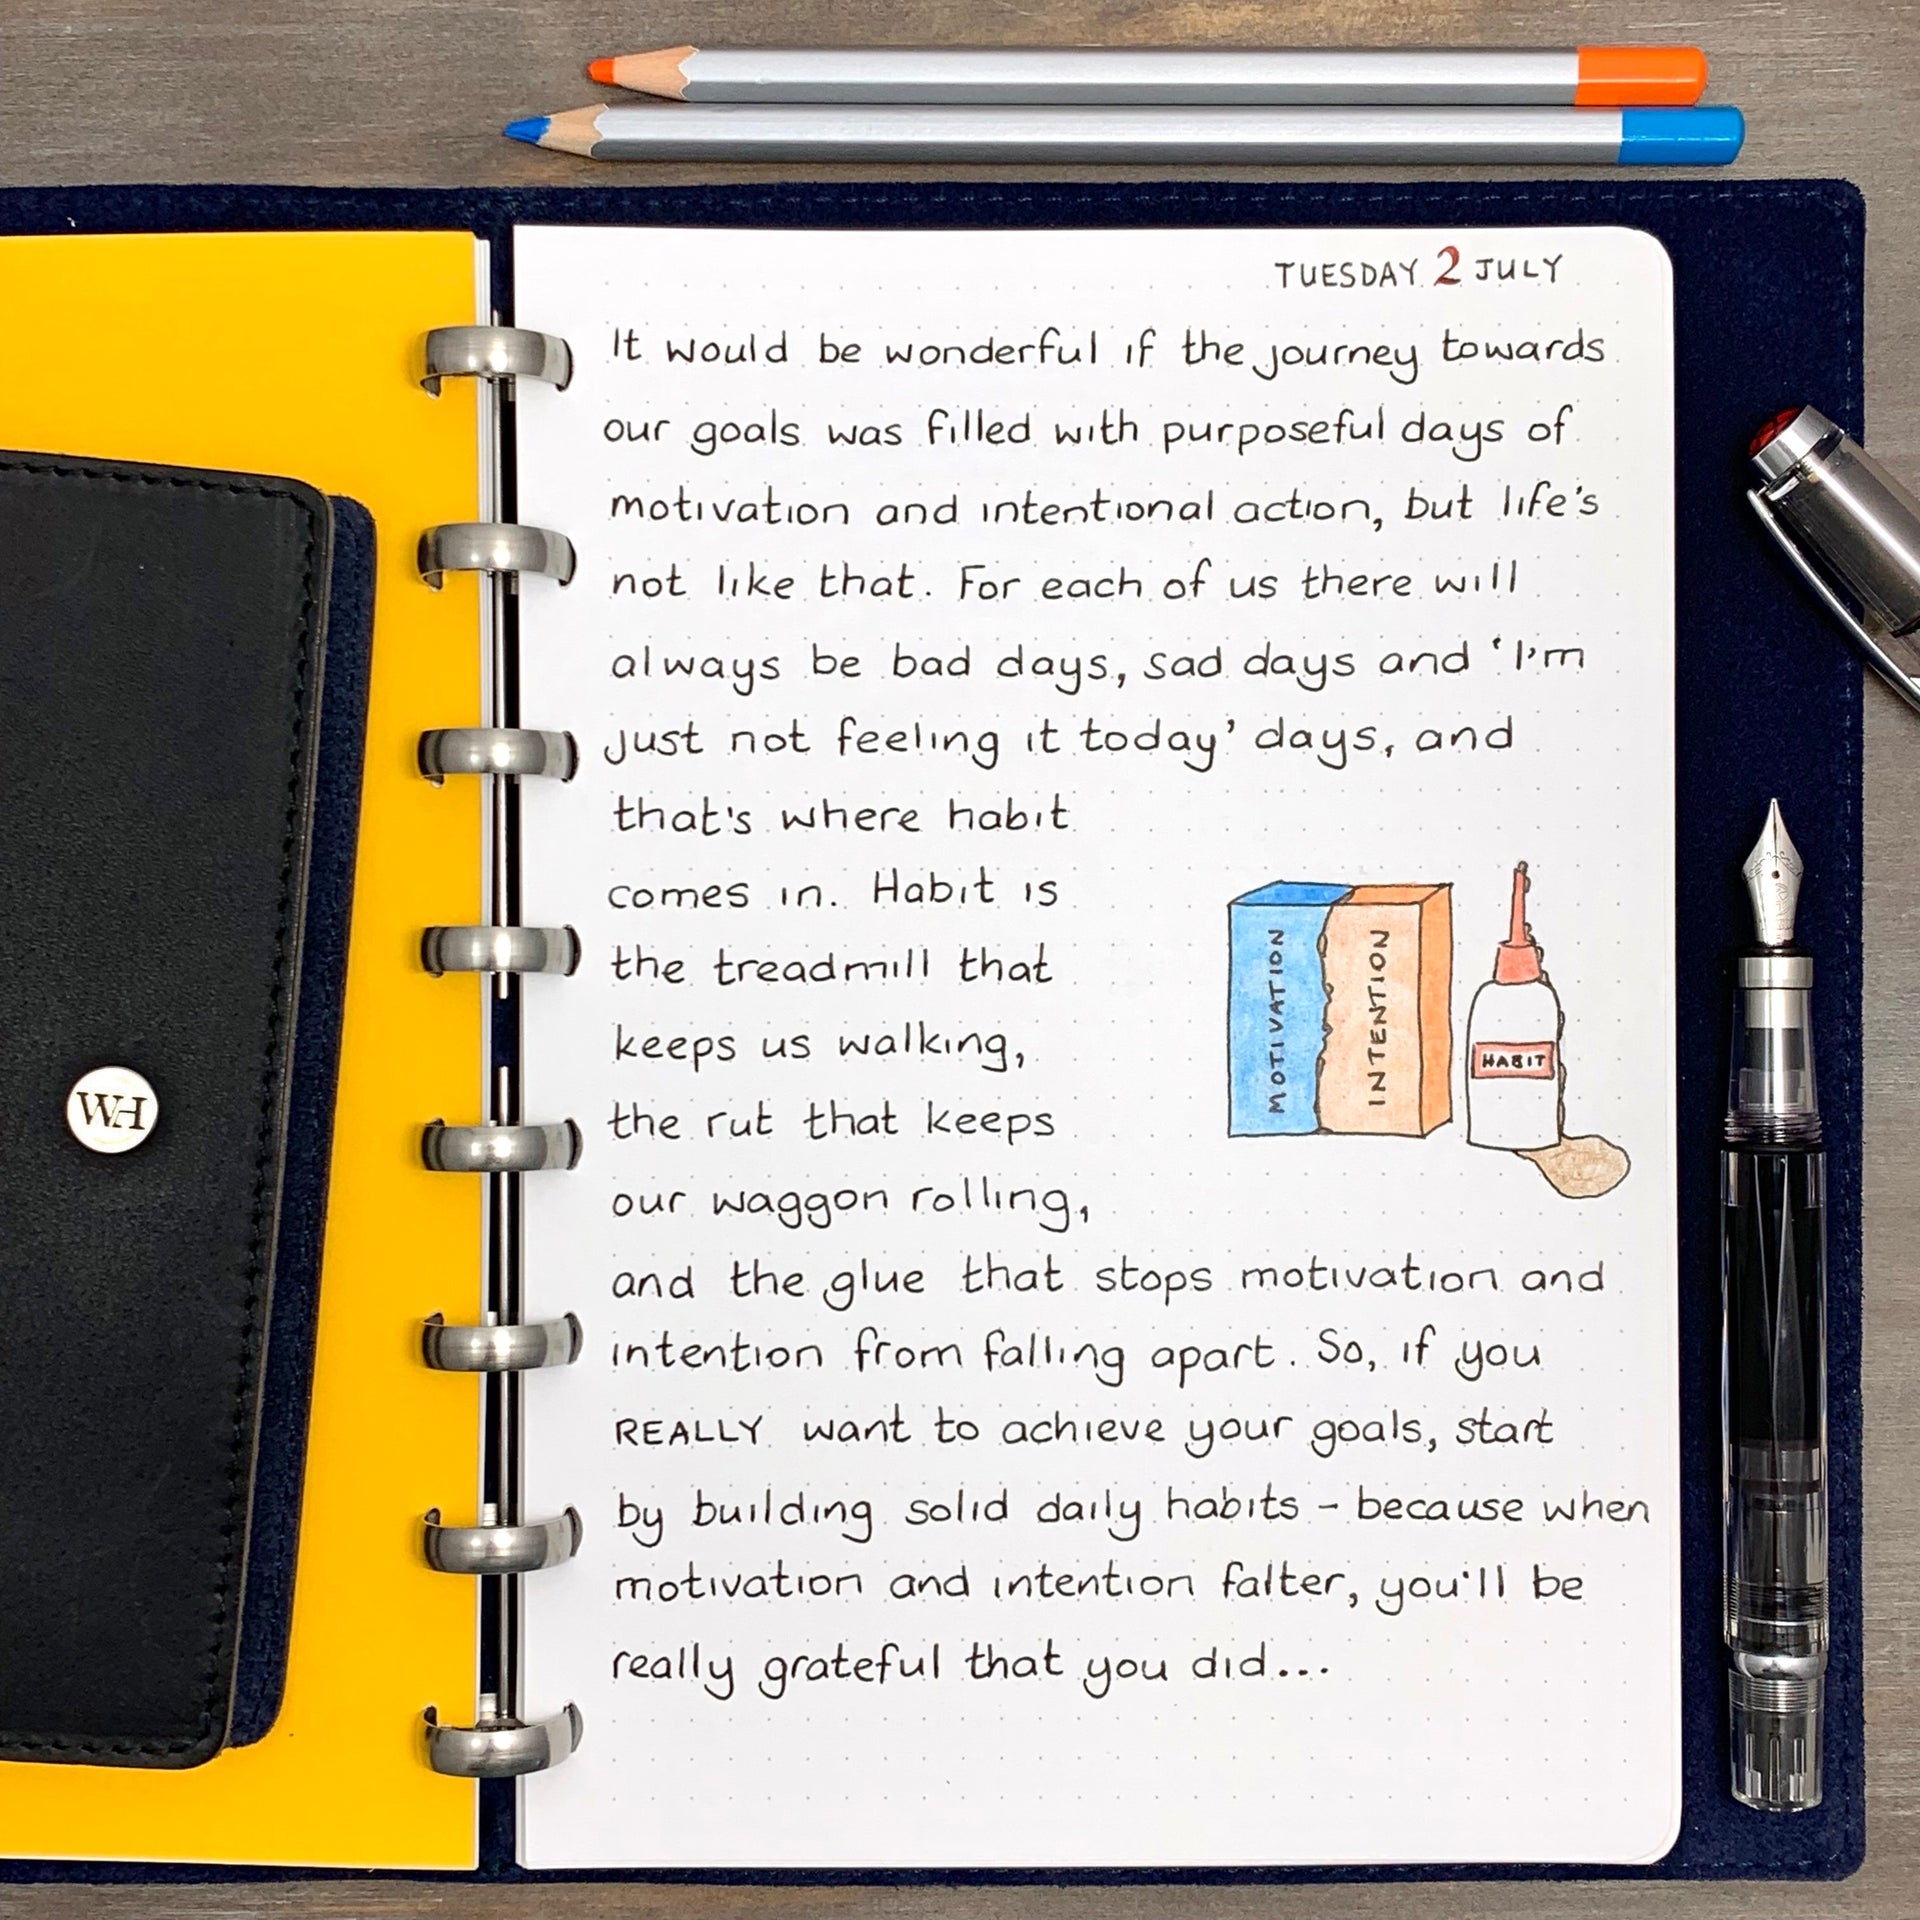 TUESDAY 2 JULY
It would be wonderful if the journey towards
our goals was filled with purposeful days of
motivation and intentional action, but life's
not like that. For each of us there will
always be bad days, sad days and 'I'm
just not feeling it today' days, and
that's where habit
comes in. Habit is
the treadmill that
keeps us walking,
the rut that keeps
our waggon rolling,
and the glue that stops motivation and
intention from falling apart. So, if you
REALLY want to achieve your goals, start
by building solid daily habits – because when
motivation and intention falter, you'll be
really grateful that you did...
MOTIVATION
INTENTION
HABIT
WH